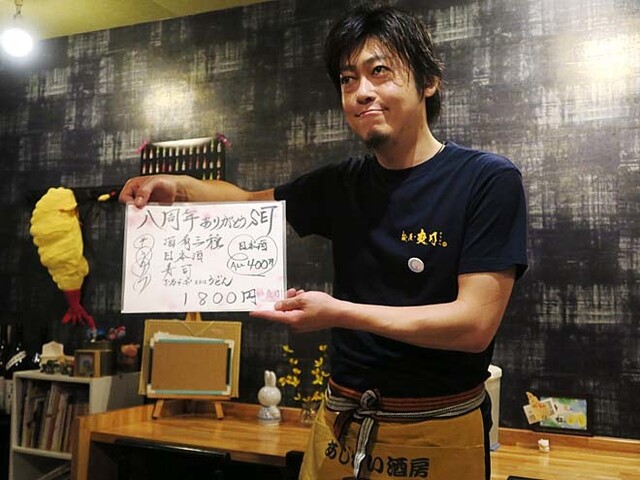 八周年ありがとうSET
酒肴三種
日本酒
寿司
うどん
1800円
日本酒
ALL 400円
酒房